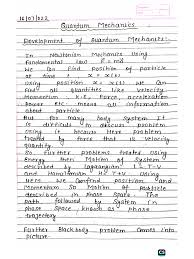 16/07/022
Quantum Mechanics
Development of Quantum Mechanics:-
In Newtonian Mechanics Using
fundamental law F = ma
We do find Position of particle
at time t x = x(t)
Using position x = x(t) we can
find all quantities like velocity
Momentum, K.E, Force, acceleration
Power etc means all information
about particle.
But for many body System it
is difficult to discuss problem
Using it because here problem
treated by force that is velocity
quantity.
So further problems treated using
Energy then Motion of System
described by Lagrangian L = T-V
and Hamiltonian H = T+V Using
Here we Confined position and
Momentum so Motion of particle
described in Phase space The
path followed by System in
phase space knowds as phase
trajectory
Further Black body problem comes into
picture.